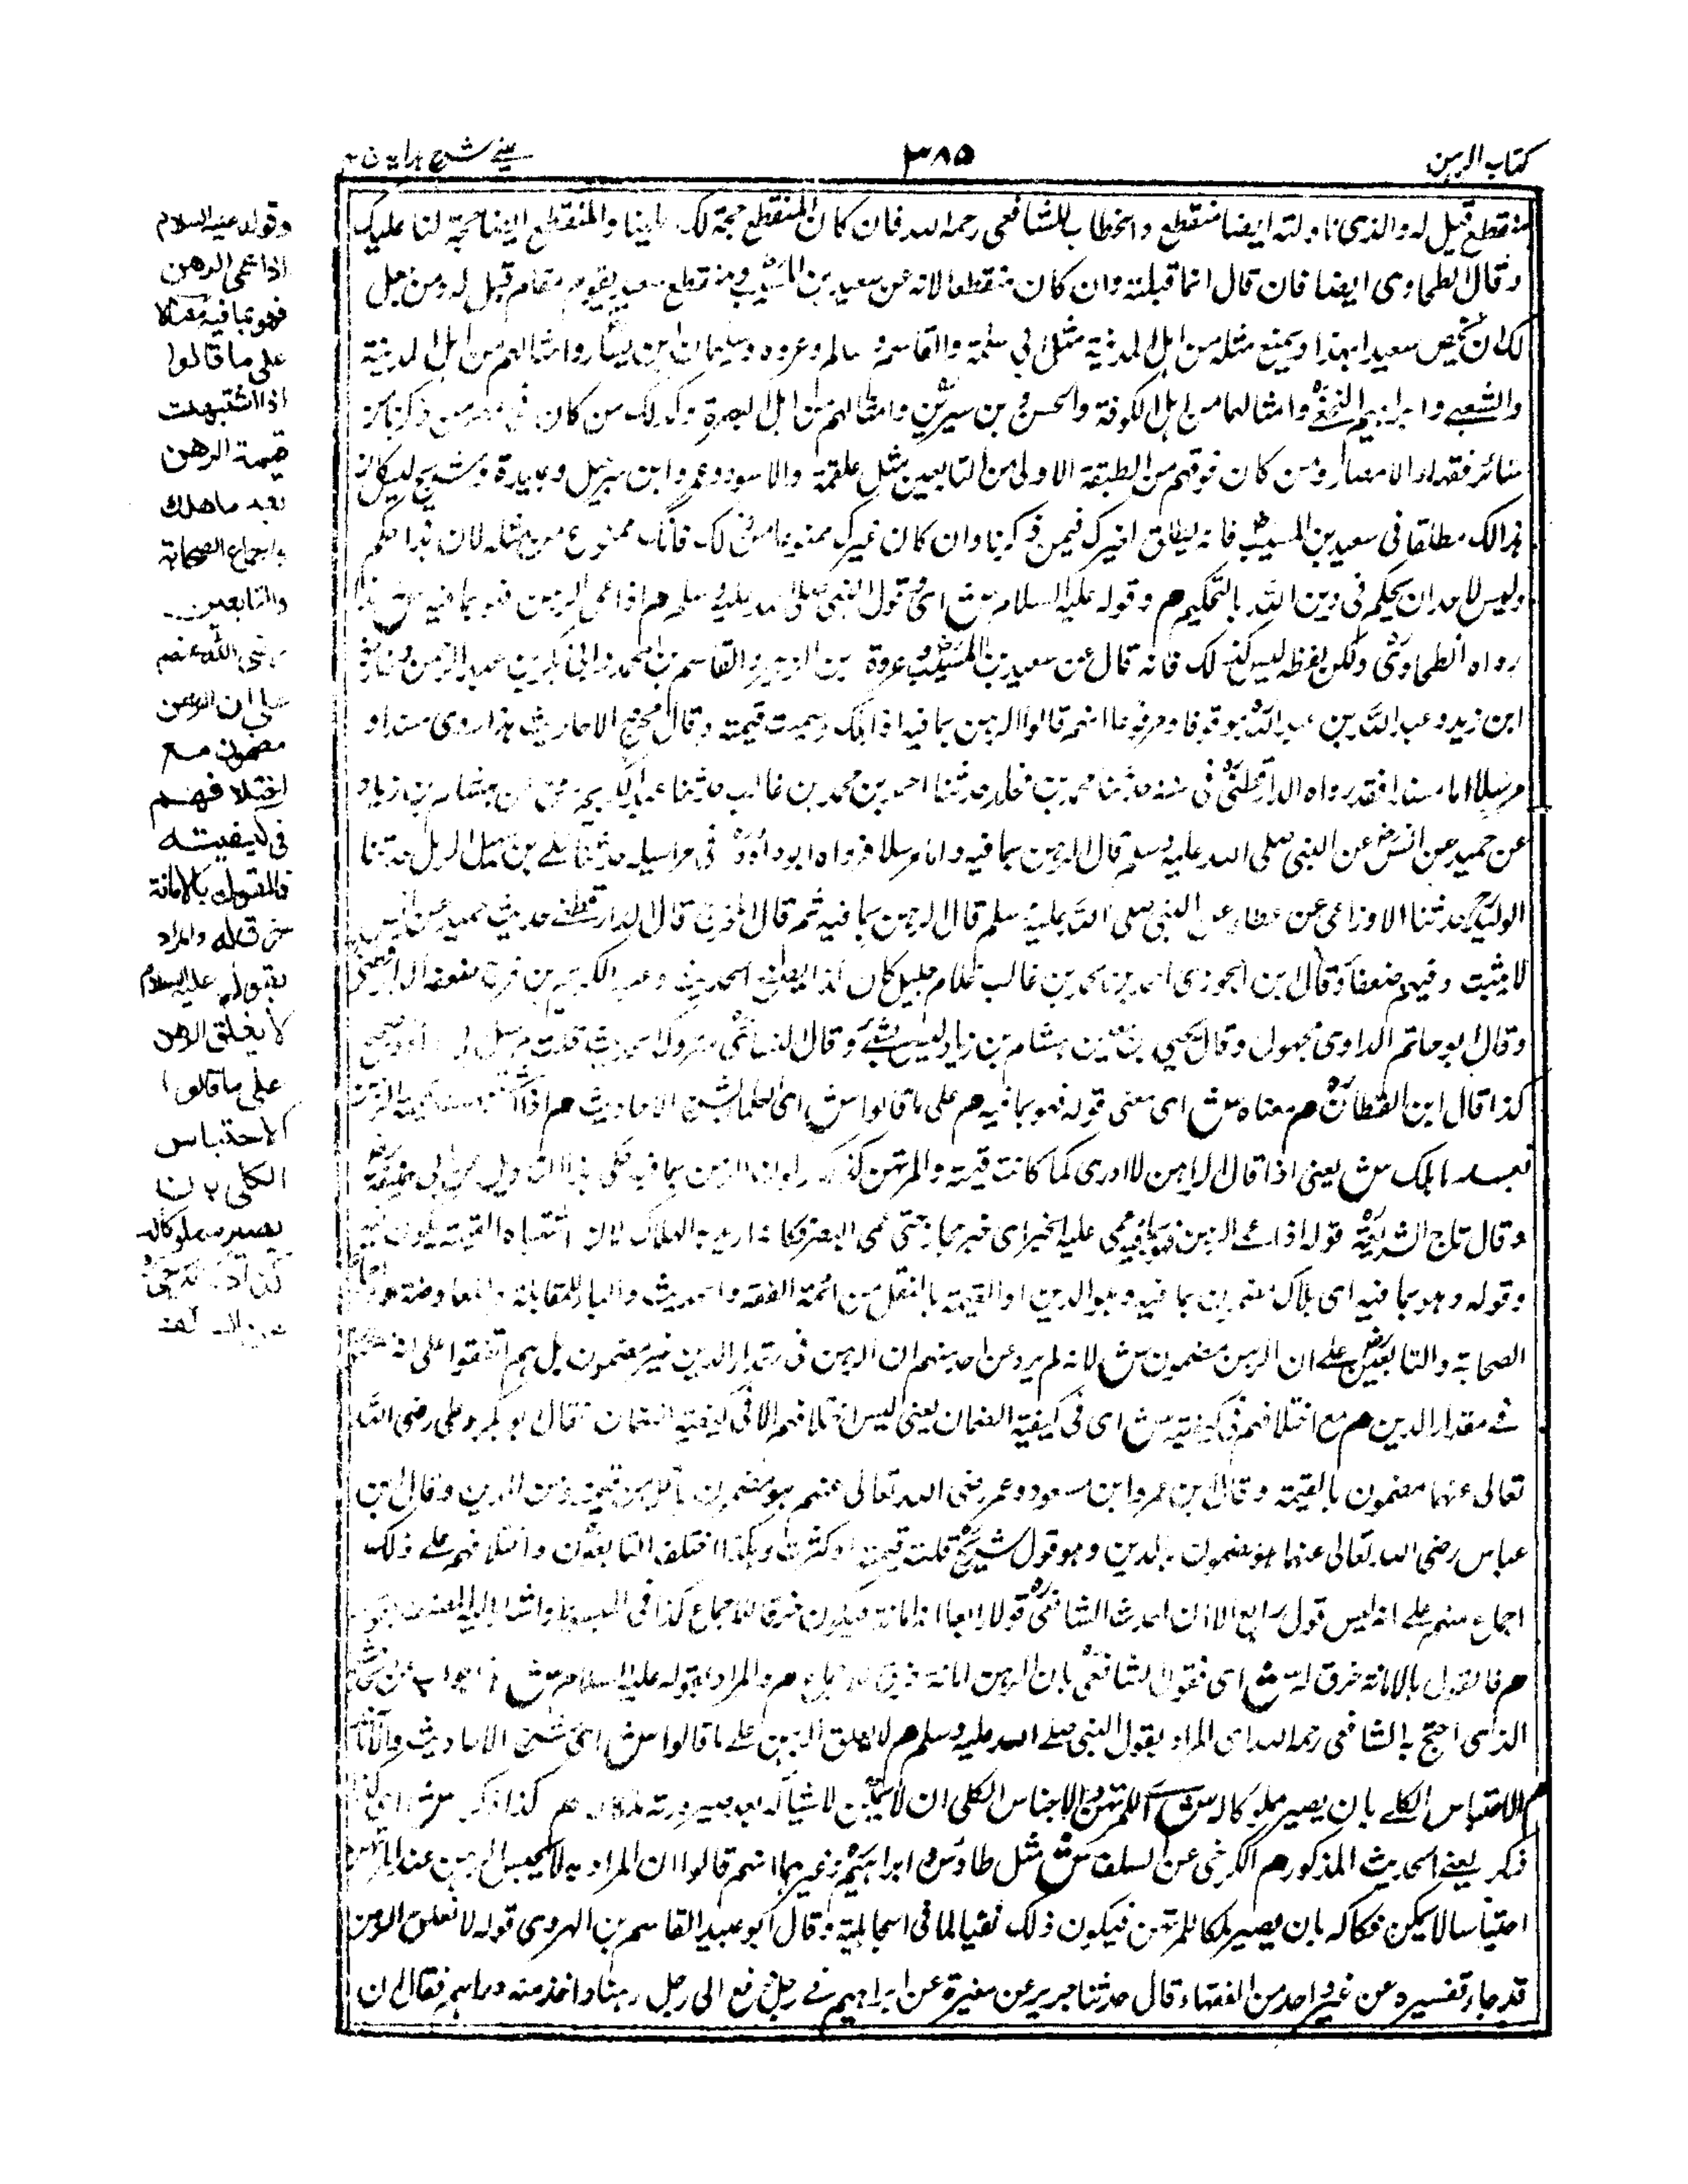 كتاب الرهن
٣٨٥
عينے شرح هدايه
منقطع قيل له والذى تاولته ايضا منقطع والخطاب للشافعى رحمه الله فان كان المنقطع حجة لك علينا والمنقطع ايضا حجة لنا عليك
وقال الطحاوى ايضا فان قال انما قبلته وان كان منقطعا لانه عن سعيد بن المسيب ومنقطع سعيد يقوم مقام قيل له ومن جعل
لك ان تخص سعيدا بهذا وتمنع مثله من اهل المدينة مثل ابى سلمة والقاسم وسالم وعروه وسليمان بن يسار وامثالهم من اهل المدينة
والشعبے وابراهيم النخعى وامثالهما من اهل الكوفة والحسن وبن سيرين وامثالهم من اهل البصرة وكذلك من كان فى من ذكرنا من
سائر فقهاء الامصار ومن كان فوقهم من الطبقة الاولى من التابعين مثل علقمة والاسود وعمرو ابن شرحبيل وعبيدة وشريح لئن كان
هذا لك مطلقا فى سعيد بن المسيب فانه يطلق لغيرك فيمن ذكرنا وان كان غيرك ممنوعا من ذلك فانك ممنوع من مثله لان هذا حكم
وليس لاحد ان يحكم فى دين الله بالتحكيم م وقوله عليه السلام ش اى قول النبى صلى الله عليه وسلم م اذا عمى الرهن فهو بما فيه ش هذا
رواه الطحاوى ولكن لفظه ليس كذلك فانه قال عن سعيد بن المسيب وعروة بن الزبير والقاسم بن محمد وابى بكر بن عبد الرحمن وخارجة
ابن زيد وعبيد الله بن عبد الله موقوفا ومرفوعا انهم قالوا الرهن بما فيه اذا هلك وعميت قيمته وقال مخرج الاحاديث هذا روى مسندا و
مرسلا اما مسندا فقد رواه الدارقطنى فى سننه حدثنا محمد بن مخلد حدثنا احمد بن محمد بن غالب حدثنا عبد الكريم عن هشام بن زياد
عن حميد عن انس عن النبى صلى الله عليه وسلم قال الرهن بما فيه واما مرسلا فرواه ابو داؤد فى مراسيله حدثنا علے بن سهل الرملى حدثنا
الوليد حدثنا الاوزاعى عن عطاء عن النبى صلى الله عليه وسلم قال الرهن بما فيه ثم قال الدارقطنے حديث حميد عن انس
لا يثبت وفيهم ضعفا وقال بن الجوزى احمد بن محمد بن غالب غلام خليل كان كذابا يضع الحديث وعبد الكريم بن ضعفه الدارقطنى
وقال ابو حاتم الراوى مجهول وقال يحيى بن معين هشام بن زياد ليس بشئے وقال النسائى متروك الحديث قلت مرسل ابى داؤد صحيح
كذا قال ابن القطان م معناه ش اى معنى قوله فهو بما فيه م على ما قالوا ش اى العلماء الاحاديث م اذا اشتبهت قيمة الرهن
بعد ما هلك ش يعنى اذا قال الراهن لا ادرى كما كانت قيمته والمرتهن كذلك
وقال تاج الشريعة قوله اذا عمے الرهن فهو بما فيه عمى عليه الخبر اى خبر مجاز حتى عمى البصر لان اشتباه القيمة يكون
وقوله وهو بما فيه اى هلاك مضمون بما فيه وهو الدين او القيمة بالنقل من ائمة الفقه والحديث والباء للمقابلة والمعاوضة
الصحابة والتابعين علے ان الرهن مضمون ش لانه لم يرد عن احد منهم ان الرهن فى مقدار الدين غير مضمون بل هم اتفقوا على انه مضمون
فے مقدار الدين م مع اختلافهم فى كيفيته ش اى فى كيفية الضمان يعنى ليس اختلافهم الا فى كيفية الضمان فقال ابو بكر وعلى رضى الله
تعالى عنهما مضمون بالقيمة وقال بن عمر وابن مسعود وعمر رضى الله تعالى عنهم هو مضمون بالاقل من قيمته ومن الدين وقال بن
عباس رضى الله تعالى عنهما هو مضمون بالدين وهو قول شريح قلت قيمته او كثرت وهكذا اختلف التابعون واختلافهم علے ذلك
اجماع منهم علے انه ليس قول رابع الا ان احدث الشافعى قولا رابعا انه امانة فيكون خرقا للاجماع كذا فى المبسوط واشار اليه المصنف بقوله
م فالقول بالامانة خرق له ش اى فقول الشافعى بان الرهن امانة خرق للاجماع م والمراد بقوله عليه السلام ش هذا جواب عن
الذى احتج به الشافعى رحمه الله اى المراد بقول النبى صلے الله عليه وسلم م لا يغلق الرهن علے ما قالوا ش اى الاحاديث والآثار
م الاحتباس الكلے بان يصير مملوكا له ش اى للمرتهن والاحتباس الكلى ان لا يمكن بعد صيرورته م كذا ذكر ش اى
ذكر يعنے الحديث المذكور م الكرخى عن السلف ش مثل طاوس وابراهيم وغيرهما انهم قالوا ان المراد به لا يحبس الرهن عند المرتهن
احتباسا لا يمكن فكاكه بان يصير ملكا للمرتهن فيكون ذلك نفيا لما فى الجاهلية وقال ابو عبيد القاسم بن الهروى قوله لا تغلق الرهن
قد جاء تفسيره عن غير واحد من الفقهاء قال حدثنا جرير عن مغيرة عن ابراهيم فے رجل دفع الى رجل رهنا واخذ منه دراهم فقال ان
وقوله عليه السلام
اذا عمى الرهن
فهو بما فيه معناه
على ما قالوا
اذا اشتبهت
قيمة الرهن
بعد ما هلك
واجماع الصحابة
والتابعين
رضى الله عنهم
على ان الرهن
مضمون مع
اختلافهم
فى كيفيته
فالقول بالامانة
خرق له والمراد
بقوله عليه السلام
لا يغلق الرهن
على ما قالوا
الاحتباس
الكلى بان
يصير مملوكا له
كذا ذكر الكرخى
عن السلف